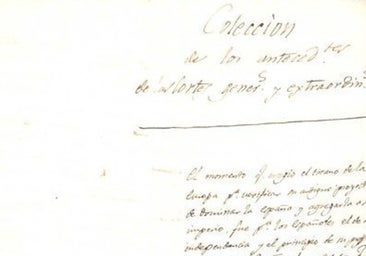 Coleccion
de los anteced.tes
de las Cortes gener.s y extraordin.s
El momento q.e eligio el tirano de la
Europa p.a verificar su antiguo proyecto
de dominar la españa y agregarla a su
imperio, fue p.a los Españoles el de su
independencia y el principio de su